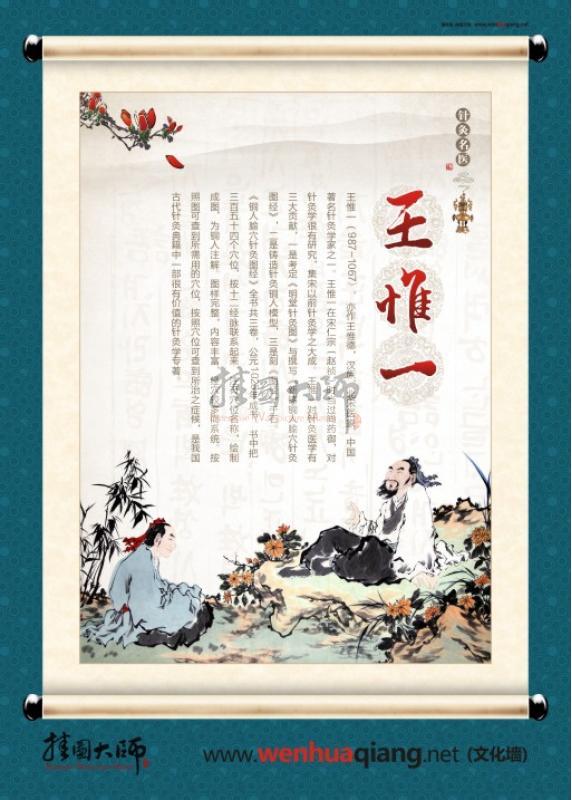 针灸名医
王惟一
王惟一（987-1067），亦作王惟德，汉族，北宋医家，中国
著名针灸学家之一。王惟一在宋仁宗（赵祯）时当过尚药御，对
针灸学很有研究，集宋以前针灸学之大成，王惟一对针灸医学有
三大贡献，一是考定《明堂针灸图》与撰写《新铸铜人腧穴针灸
图经》，二是铸造针灸铜人模型，三是刻《图经》于石。
《铜人腧穴针灸图经》全书共三卷，公元1026年成书，书中把
三百五十四个穴位，按十二经脉联系起来，注有穴位名称，绘制
成图，为铜人注解。图样完整，内容丰富，经穴较多而系统。按
照图可查到所需用的穴位，按照穴位可查到所治之症候，是我国
古代针灸典籍中一部很有价值的针灸学专著。
挂图大师
挂图大师
www.wenhuaqiang.net (文化墙)